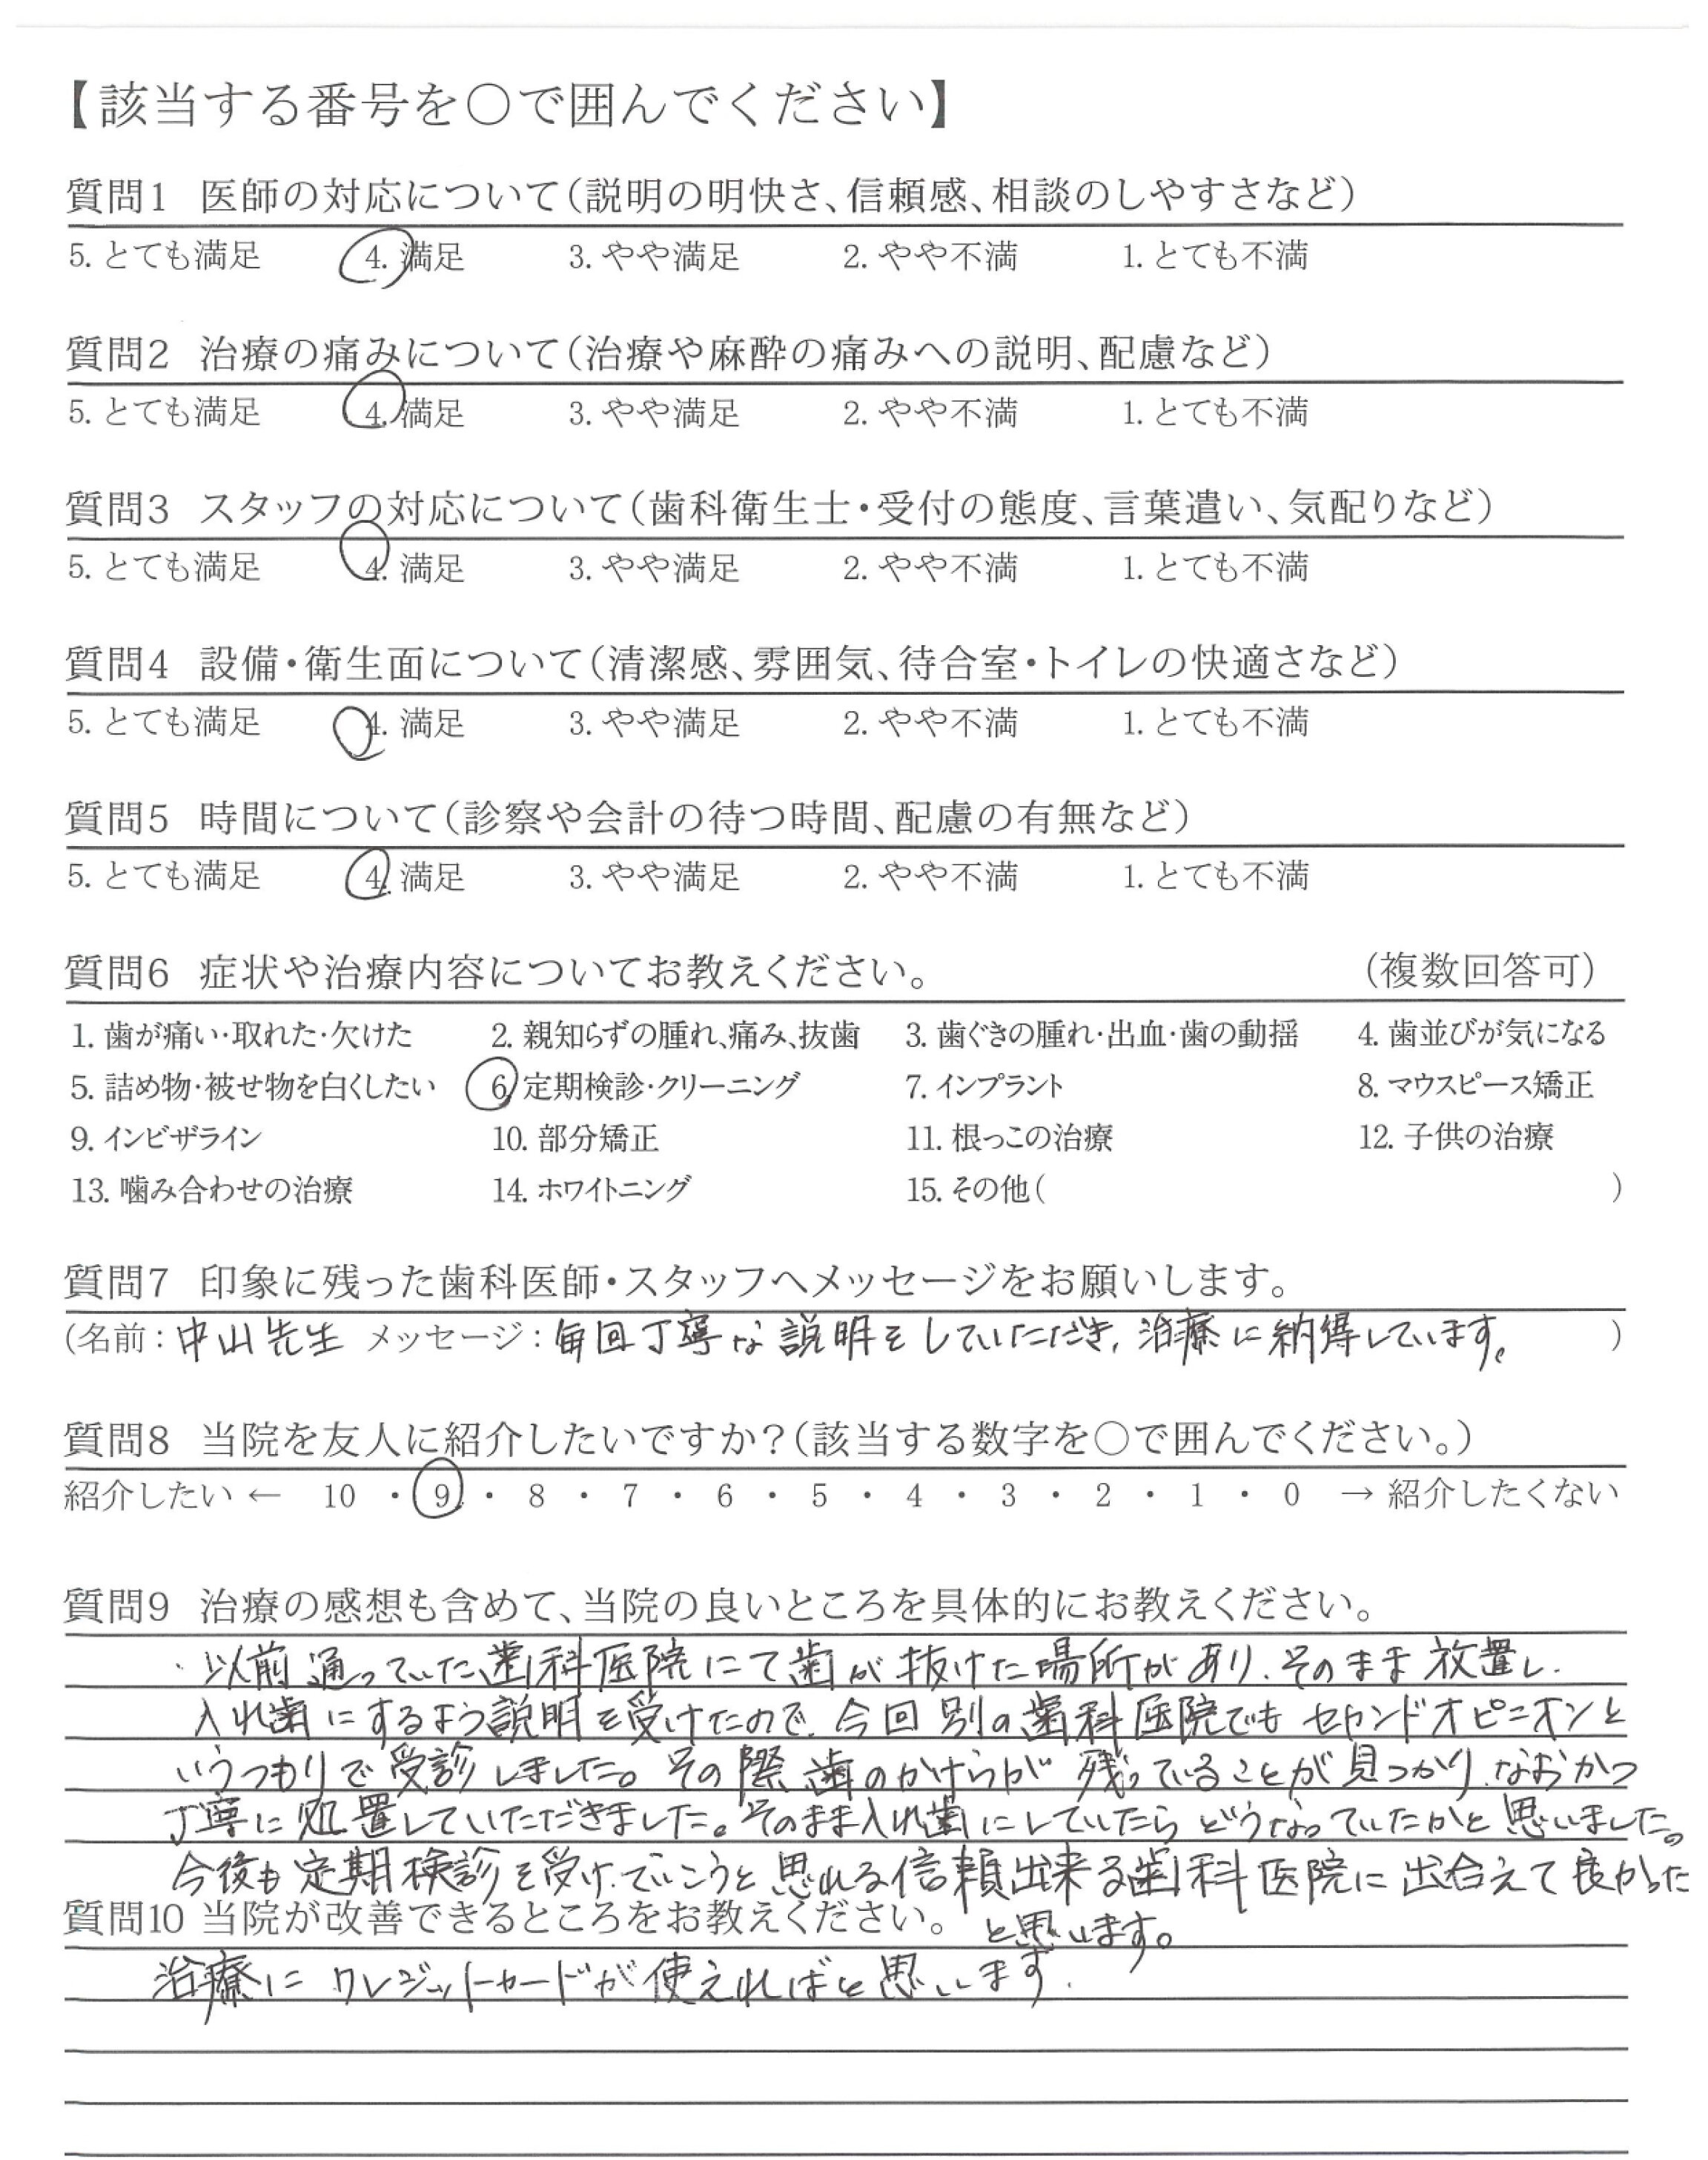 【該当する番号を○で囲んでください】
質問1 医師の対応について(説明の明快さ、信頼感、相談のしやすさなど)
5. とても満足 4. 満足 3. やや満足 2. やや不満 1. とても不満
質問2 治療の痛みについて(治療や麻酔の痛みへの説明、配慮など)
5. とても満足 4. 満足 3. やや満足 2. やや不満 1. とても不満
質問3 スタッフの対応について(歯科衛生士・受付の態度、言葉遣い、気配りなど)
5. とても満足 4. 満足 3. やや満足 2. やや不満 1. とても不満
質問4 設備・衛生面について(清潔感、雰囲気、待合室・トイレの快適さなど)
5. とても満足 4. 満足 3. やや満足 2. やや不満 1. とても不満
質問5 時間について(診察や会計の待つ時間、配慮の有無など)
5. とても満足 4. 満足 3. やや満足 2. やや不満 1. とても不満
質問6 症状や治療内容についてお教えください。 (複数回答可)
1. 歯が痛い・取れた・欠けた 2. 親知らずの腫れ、痛み、抜歯 3. 歯ぐきの腫れ・出血・歯の動揺 4. 歯並びが気になる
5. 詰め物・被せ物を白くしたい 6. 定期検診・クリーニング 7. インプラント 8. マウスピース矯正
9. インビザライン 10. 部分矯正 11. 根っこの治療 12. 子供の治療
13. 噛み合わせの治療 14. ホワイトニング 15. その他( )
質問7 印象に残った歯科医師・スタッフへメッセージをお願いします。
(名前:中山先生 メッセージ:毎回丁寧な説明をしていただき、治療に納得しています。 )
質問8 当院を友人に紹介したいですか?(該当する数字を○で囲んでください。)
紹介したい ← 10 ・ 9 ・ 8 ・ 7 ・ 6 ・ 5 ・ 4 ・ 3 ・ 2 ・ 1 ・ 0 → 紹介したくない
質問9 治療の感想も含めて、当院の良いところを具体的にお教えください。
・以前通っていた歯科医院にて歯が抜けた場所があり、そのまま放置し、
入れ歯にするよう説明を受けたので、今回別の歯科医院でもセカンドオピニオンと
いうつもりで受診しました。その際歯のかけらが残っていることが見つかり、なおかつ
丁寧に処置していただきました。そのまま入れ歯にしていたらどうなっていたかと思いました。
今後も定期検診を受けていこうと思れる信頼出来る歯科医院に出合えて良かった
と思います。
質問10 当院が改善できるところをお教えください。
治療にクレジットカードが使えればと思います.